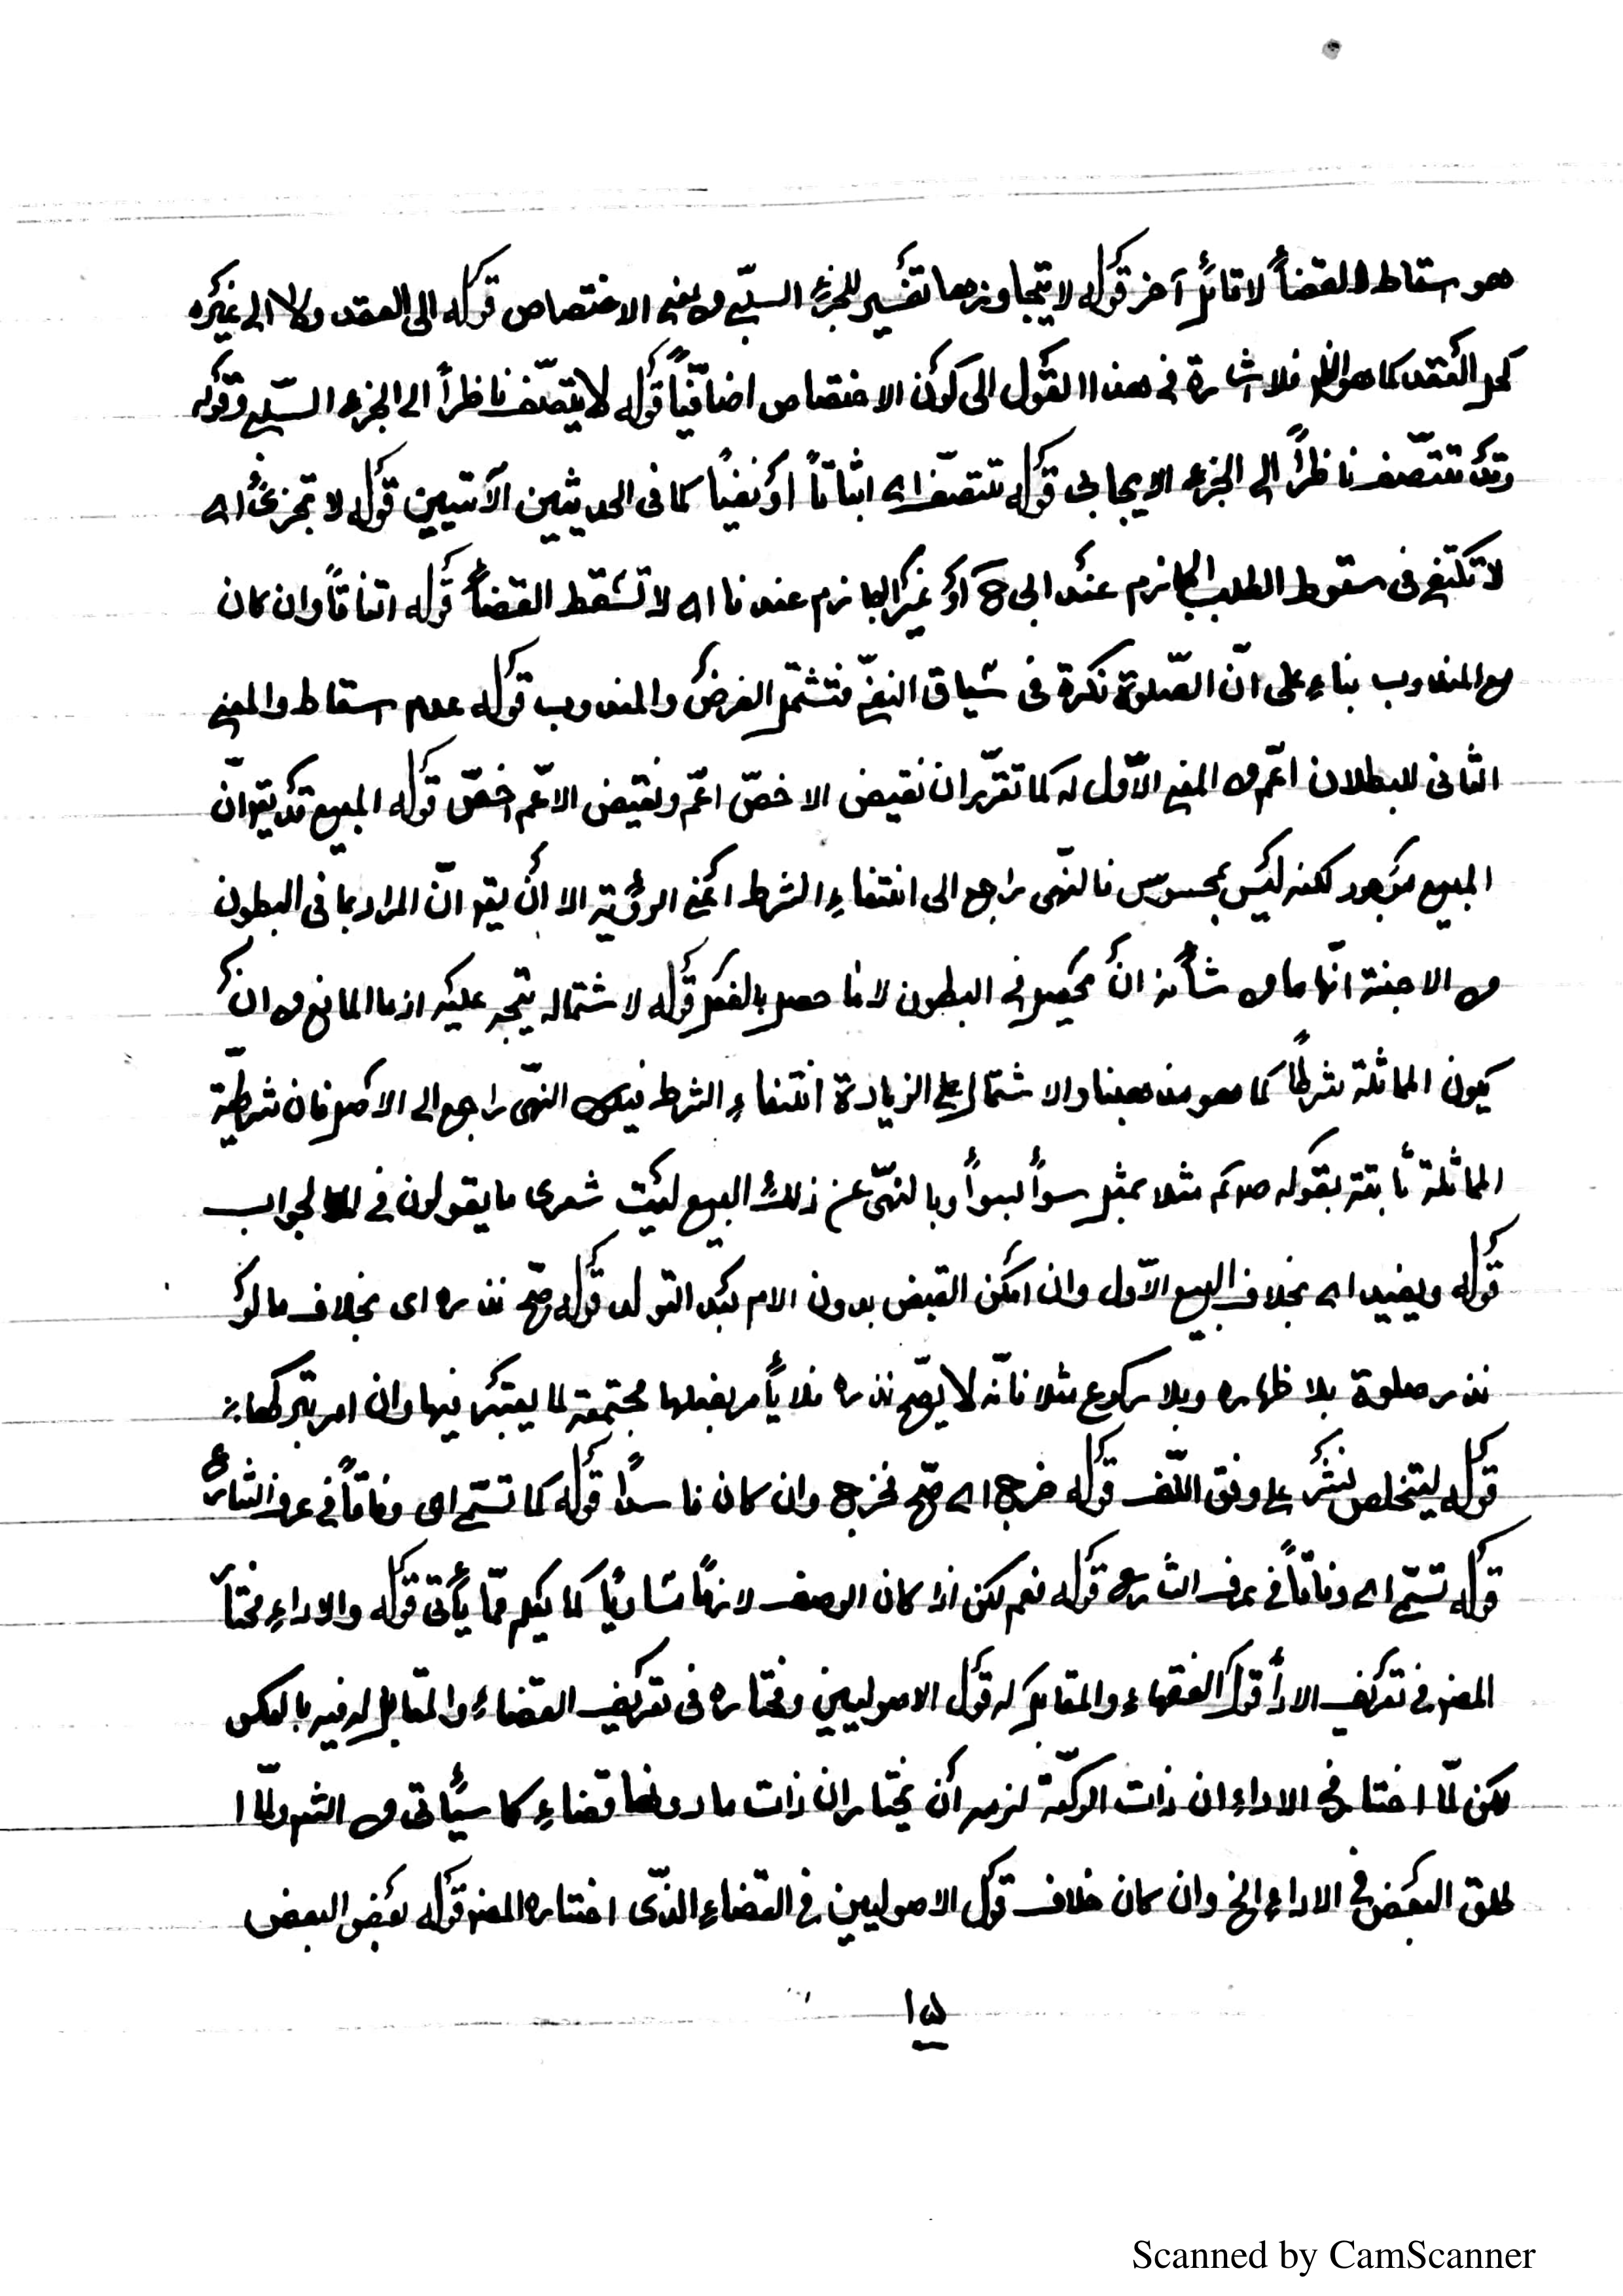 هو اسقاط القضاء لا قائل آخر قوله لا يتجاوزهما تفسير للجزء السلبي من معنى الاختصاص قوله الى العقد ولا الى غيره
كحل العقد كما هو الظ فلا اشارة في هذا القول الى كون الاختصاص اضافيًا قوله لا يتصف ناظرًا الى الجزء السلبي وقوله
وقد تتصف ناظرًا الى الجزء الايجابي قوله تتصف اى اثباتًا او نفيًا كما في الحديثين الآتيين قوله لا تجزئ اى
لا تكتفى في سقوط الطلب الجازم عند ابى ح او غير الجازم عندنا اى لا تسقط القضاء قوله اتفاقًا وان كان
مع المندوب بناء على انّ الصّلوة نكرة في سياق النفي فتشمل الفرض والمندوب قوله عدم اسقاط والمعنى
الثاني للبطلان اعمّ من المعنى الاوّل له كما تقرّر ان نقيض الاخصّ اعمّ ونقيض الاعمّ اخصّ قوله المبيع قد يقو انّ
المبيع موجود لكنه ليس بمحسوس فالنهى راجع الى انتفاء الشرط اعنى الرؤية الا أن يقو انّ المراد بما في البطون
من الاجنة انّها ما من شأنه ان يحصل في البطون لا ما حصل بالفعل قوله لاشتماله يتجه عليه انه ما المانع من ان
يكون المماثلة شرطًا كما هو مذهبنا والاشتمال على الزيادة انتفاء الشرط فيكون النهّى راجع الى الاصل فان شرطيّة
المماثلة ثابتة بقوله صلعم مثلا بمثل سواء بسواء وبالنهّى عن ذلك البيع ليت شعرى ما يقولون في الجواب
قوله ويفيد اى بخلاف البيع الاوّل وان امكن القبض بدون الام بعد التولد قوله صحّ نذره اى بخلاف ما لو
نذر صلوة بلا طهاره وبلا ركوع مثلا فانّه لا يصّح نذره فلا يأمر بفعلها مجتمعة لما يعتبر فيها وان امر بتركها
قوله ليتخلص نشر على وفق اللّف قوله خرج اى صحّ فخرج وان كان فاسدًا قوله كما تسمّى اى وفاقًا في عرف الشارع
قوله تسمّى اى وفاقًا في عرف الشارع قوله نعم لكن اذا كان الوصف لازمًا مساويًا كما يعلم ممّا يأتى قوله والاداء مختار
المص في تعريف الاداء قول الفقهاء والمقابل له قول الاصوليين ومختاره في تعريف القضاء والمقابل له فيه بالعكس
لكن لمّا اختار في الاداء ان ذات الركعة لزمه أن يختار ان ذات ما دونها قضاء كما سيأتى من الشم ولمّا ا
طلق البعض في الاداء الخ وان كان خلاف قول الاصوليين في القضاء الذّى اختاره المص قوله بعض البعض
١٥
Scanned by CamScanner